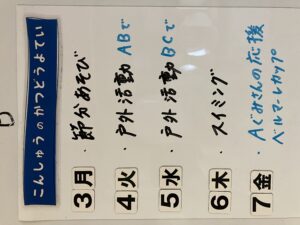 こんしゅうのかつどうよてい
3 月 ・節分あそび
4 火 ・戸外活動 ABで
5 水 ・戸外活動 BCで
6 木 ・スイミング
7 金 ・Aぐみさんの応援
ベルマーレカップ